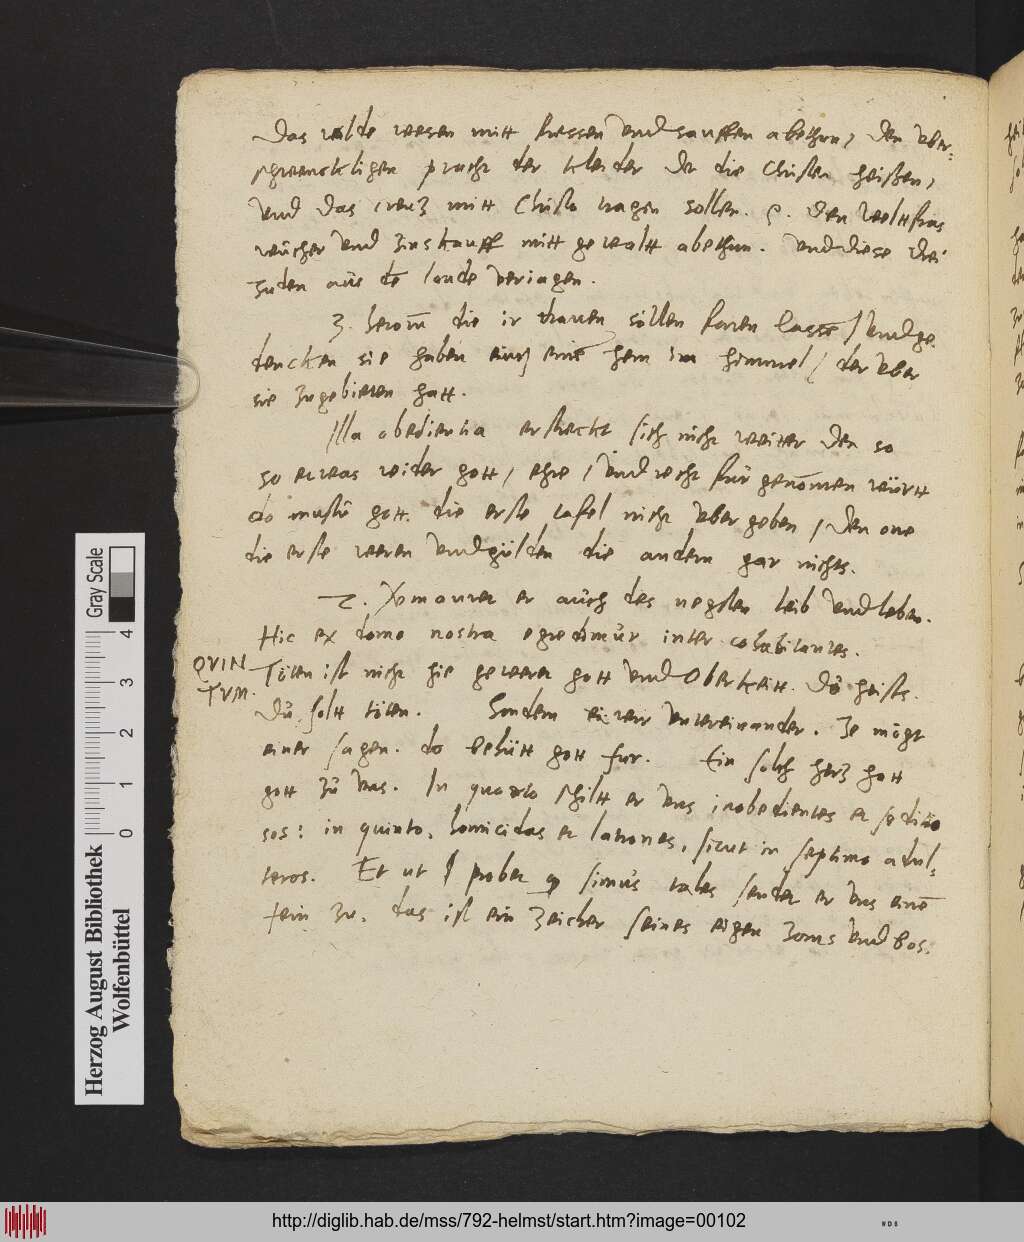 Das wilde wesen mitt fressen vnd sauffen abethun, den vber-
schwencktligen pracht der kleider der die Christen heißen,
vnd das creuz mitt Christo tragen sollen. den weltfras
wücher vnd zinskauff mitt gewaltt abethun. vnd diese drei
Juden aüs dē lande veriagen.
3. herōm die ir trauen söllen faren lassē / vnd ge
dencken sie haben einē hern im himmel / der vber
sie zugebieten hatt.
Illa obedientia erstreckt sich nicht weitter den so
so etwas wider gott, ehr, vnd recht fürgenōmen württ
do mustu gott die erste tafel nicht vbergeben, den one
die erste weren vnd gülden die andern gar nichts.
2. er aüch des negsten leib vnd leben.
Hic ex domo nostra egredimür inter cohabitantes.
QVIN
TVM.
Töten ist nicht hie geweret gott vnd Oberkeitt. Dü heists.
Dü solt töten. Sondern vntereinander. Je möcht
einer sagen. do behütt gott fur. Ein solch herz hott
gott zü vns. In quarto schiltt er vns inobedientes et seditio
sos: in quinto, homicidas et latrones, sicut in septimo adul-
teros. Et ut probet simus tales sendet er vns einē
fein zu, das ist ein zeicher seines eigen zorns vnd bos.
Herzog August Bibliothek
Wolfenbüttel
Gray Scale
0 1 2 3 4
http://diglib.hab.de/mss/792-helmst/start.htm?image=00102